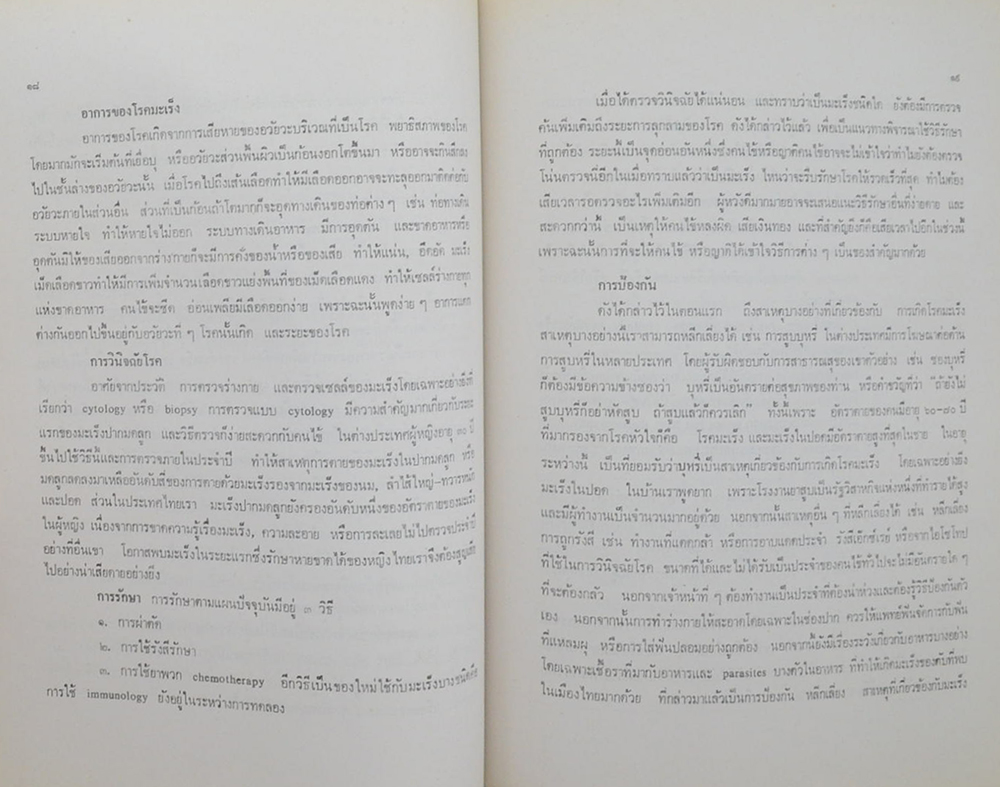 ๑๘
อาการของโรคมะเร็ง
อาการของโรคเกิดจากการเสียหายของอวัยวะบริเวณที่เป็นโรค พยาธิสภาพของโรค
โดยมากมักจะเริ่มต้นที่เยื่อบุ หรืออวัยวะส่วนพื้นผิวเป็นก้อนงอกโตขึ้นมา หรืออาจจะกินลึกลง
ไปในชั้นล่างของอวัยวะนั้น เมื่อโรคไปถึงเส้นเลือดทำให้มีเลือดออกอาจจะทะลุออกมาติดต่อกับ
อวัยวะภายในส่วนอื่น ส่วนที่เป็นก้อนถ้าโตมากก็จะอุดทางเดินของท่อต่าง ๆ เช่น ท่อทางเดิน
ระบบหายใจ ทำให้หายใจไม่ออก ระบบทางเดินอาหาร มีการอุดตัน และขาดอาหารหรือ
อุดตันมิให้ของเสียออกจากร่างกายก็จะมีการคั่งของน้ำหรือของเสีย ทำให้แน่น, อึดอัด มะเร็ง
เม็ดเลือดขาวทำให้มีการเพิ่มจำนวนเลือดขาวแย่งพื้นที่ของเม็ดเลือดแดง ทำให้เซลล์ร่างกายทุก
แห่งขาดอาหาร คนไข้จะซีด อ่อนเพลียมีเลือดออกง่าย เพราะฉะนั้นพูดง่าย ๆ อาการแตก
ต่างกันออกไปขึ้นอยู่กับอวัยวะที่ ๆ โรคนั้นเกิด และระยะของโรค
การวินิจฉัยโรค
อาศัยจากประวัติ การตรวจร่างกาย และตรวจเซลล์ของมะเร็งโดยเฉพาะอย่างยิ่งที่
เรียกว่า cytology หรือ biopsy การตรวจแบบ cytology มีความสำคัญมากเกี่ยวกับระยะ
แรกของมะเร็งปากมดลูก และวิธีตรวจก็ง่ายสะดวกกับคนไข้ ในต่างประเทศผู้หญิงอายุ ๓๐ ปี
ขึ้นไปใช้วิธีนี้และการตรวจภายในประจำปี ทำให้สาเหตุการตายของมะเร็งในปากมดลูก หรือ
มดลูกลดลงมาเหลืออันดับสี่ของการตายด้วยมะเร็งรองจากมะเร็งของนม, ลำไส้ใหญ่-ทวารหนัก
และปอด ส่วนในประเทศไทยเรา มะเร็งปากมดลูกยังครองอันดับหนึ่งของอัตราตายของมะเร็ง
ในผู้หญิง เนื่องจากการขาดความรู้เรื่องมะเร็ง, ความละอาย หรือการละเลยไม่ไปตรวจประจำปี
อย่างที่อื่นเขา โอกาสพบมะเร็งในระยะแรกซึ่งรักษาหายขาดได้ของหญิงไทยเราจึงต้องสูญเสีย
ไปอย่างน่าเสียดายอย่างยิ่ง
การรักษา การรักษาตามแผนปัจจุบันมีอยู่ ๓ วิธี
๑. การผ่าตัด
๒. การใช้รังสีรักษา
๓. การใช้ยาพวก chemotherapy อีกวิธีเป็นของใหม่ใช้กับมะเร็งบางชนิดคือ
การใช้ immunology ยังอยู่ในระหว่างการทดลอง
๑๙
เมื่อได้ตรวจวินิจฉัยได้แน่นอน และทราบว่าเป็นมะเร็งชนิดใด ยังต้องมีการตรวจ
ค้นเพิ่มเติมถึงระยะการลุกลามของโรค ดังได้กล่าวไว้แล้ว เพื่อเป็นแนวทางพิจารณาใช้วิธีรักษา
ที่ถูกต้อง ระยะนี้เป็นจุดอ่อนอันหนึ่งซึ่งคนไข้หรือญาติคนไข้อาจจะไม่เข้าใจว่าทำไมยังต้องตรวจ
โน่นตรวจนี่อีกในเมื่อทราบแล้วว่าเป็นมะเร็ง ไหนว่าจะรีบรักษาโรคให้รวดเร็วที่สุด ทำไมต้อง
เสียเวลารอตรวจอะไรเพิ่มเติมอีก ผู้หวังดีมากมายอาจจะเสนอแนะวิธีรักษาอื่นที่ง่ายดาย และ
สะดวกกว่านี้ เป็นเหตุให้คนไข้หลงผิด เสียเงินทอง และที่สำคัญยิ่งก็คือเสียเวลาไปอีกในช่วงนี้
เพราะฉะนั้นการที่จะให้คนไข้ หรือญาติได้เข้าใจวิธีการต่าง ๆ เป็นของสำคัญมากด้วย
การป้องกัน
ดังได้กล่าวไว้ในตอนแรก ถึงสาเหตุบางอย่างที่เกี่ยวข้องกับ การเกิดโรคมะเร็ง
สาเหตุบางอย่างนี้เราสามารถหลีกเลี่ยงได้ เช่น การสูบบุหรี่ ในต่างประเทศมีการโฆษณาต่อต้าน
การสูบบุหรี่ในหลายประเทศ โดยผู้รับผิดชอบกับการสาธารณสุขของเขาด้วยอย่าง เช่น ซองบุหรี่
ก็ต้องมีข้อความข้างซองว่า บุหรี่เป็นอันตรายต่อสุขภาพของท่าน หรือคำขวัญที่ว่า "ถ้ายังไม่
สูบบุหรี่ก็อย่าหัดสูบ ถ้าสูบแล้วก็ควรเลิก" ทั้งนี้เพราะ อัตราตายของคนมีอายุ ๖๐-๘๐ ปี
ที่มากรองจากโรคหัวใจก็คือ โรคมะเร็ง และมะเร็งในปอดมีอัตราตายสูงที่สุดในชาย ในอายุ
ระหว่างนี้ เป็นที่ยอมรับว่าบุหรี่เป็นสาเหตุเกี่ยวข้องกับการเกิดโรคมะเร็ง โดยเฉพาะอย่างยิ่ง
มะเร็งในปอด ในบ้านเราพูดยาก เพราะโรงงานยาสูบเป็นรัฐวิสาหกิจแห่งหนึ่งที่ทำรายได้สูง
และมีผู้ทำงานเป็นจำนวนมากอยู่ด้วย นอกจากนั้นสาเหตุอื่น ๆ ที่หลีกเลี่ยงได้ เช่น หลีกเลี่ยง
การถูกรังสี เช่น ทำงานที่แดดกล้า หรือการอาบแดดประจำ รังสีเอ็กซเรย์ หรือจากไอโซโทป
ที่ใช้ในการวินิจฉัยโรค ขนาดที่ได้และไม่ได้รับเป็นประจำของคนไข้ทั่วไปจะไม่มีอันตรายใด ๆ
ที่จะต้องกลัว นอกจากเจ้าหน้าที่ ๆ ต้องทำงานเป็นประจำที่ต้องน่าห่วงและต้องรู้วิธีป้องกันตัว
เอง นอกจากนั้นการทำร่างกายให้สะอาดโดยเฉพาะในช่องปาก ควรให้แพทย์ฟันจัดการกับฟัน
ที่แหลมผุ หรือการใส่ฟันปลอมอย่างถูกต้อง นอกจากนี้ยังมีเรื่องระวังเกี่ยวกับอาหารบางอย่าง
โดยเฉพาะเชื้อราที่มากับอาหารและ parasites บางตัวในอาหาร ที่ทำให้เกิดมะเร็งของตับที่พบ
ในเมืองไทยมากด้วย ที่กล่าวมาแล้วเป็นการป้องกัน หลีกเลี่ยง สาเหตุที่เกี่ยวข้องกับมะเร็ง